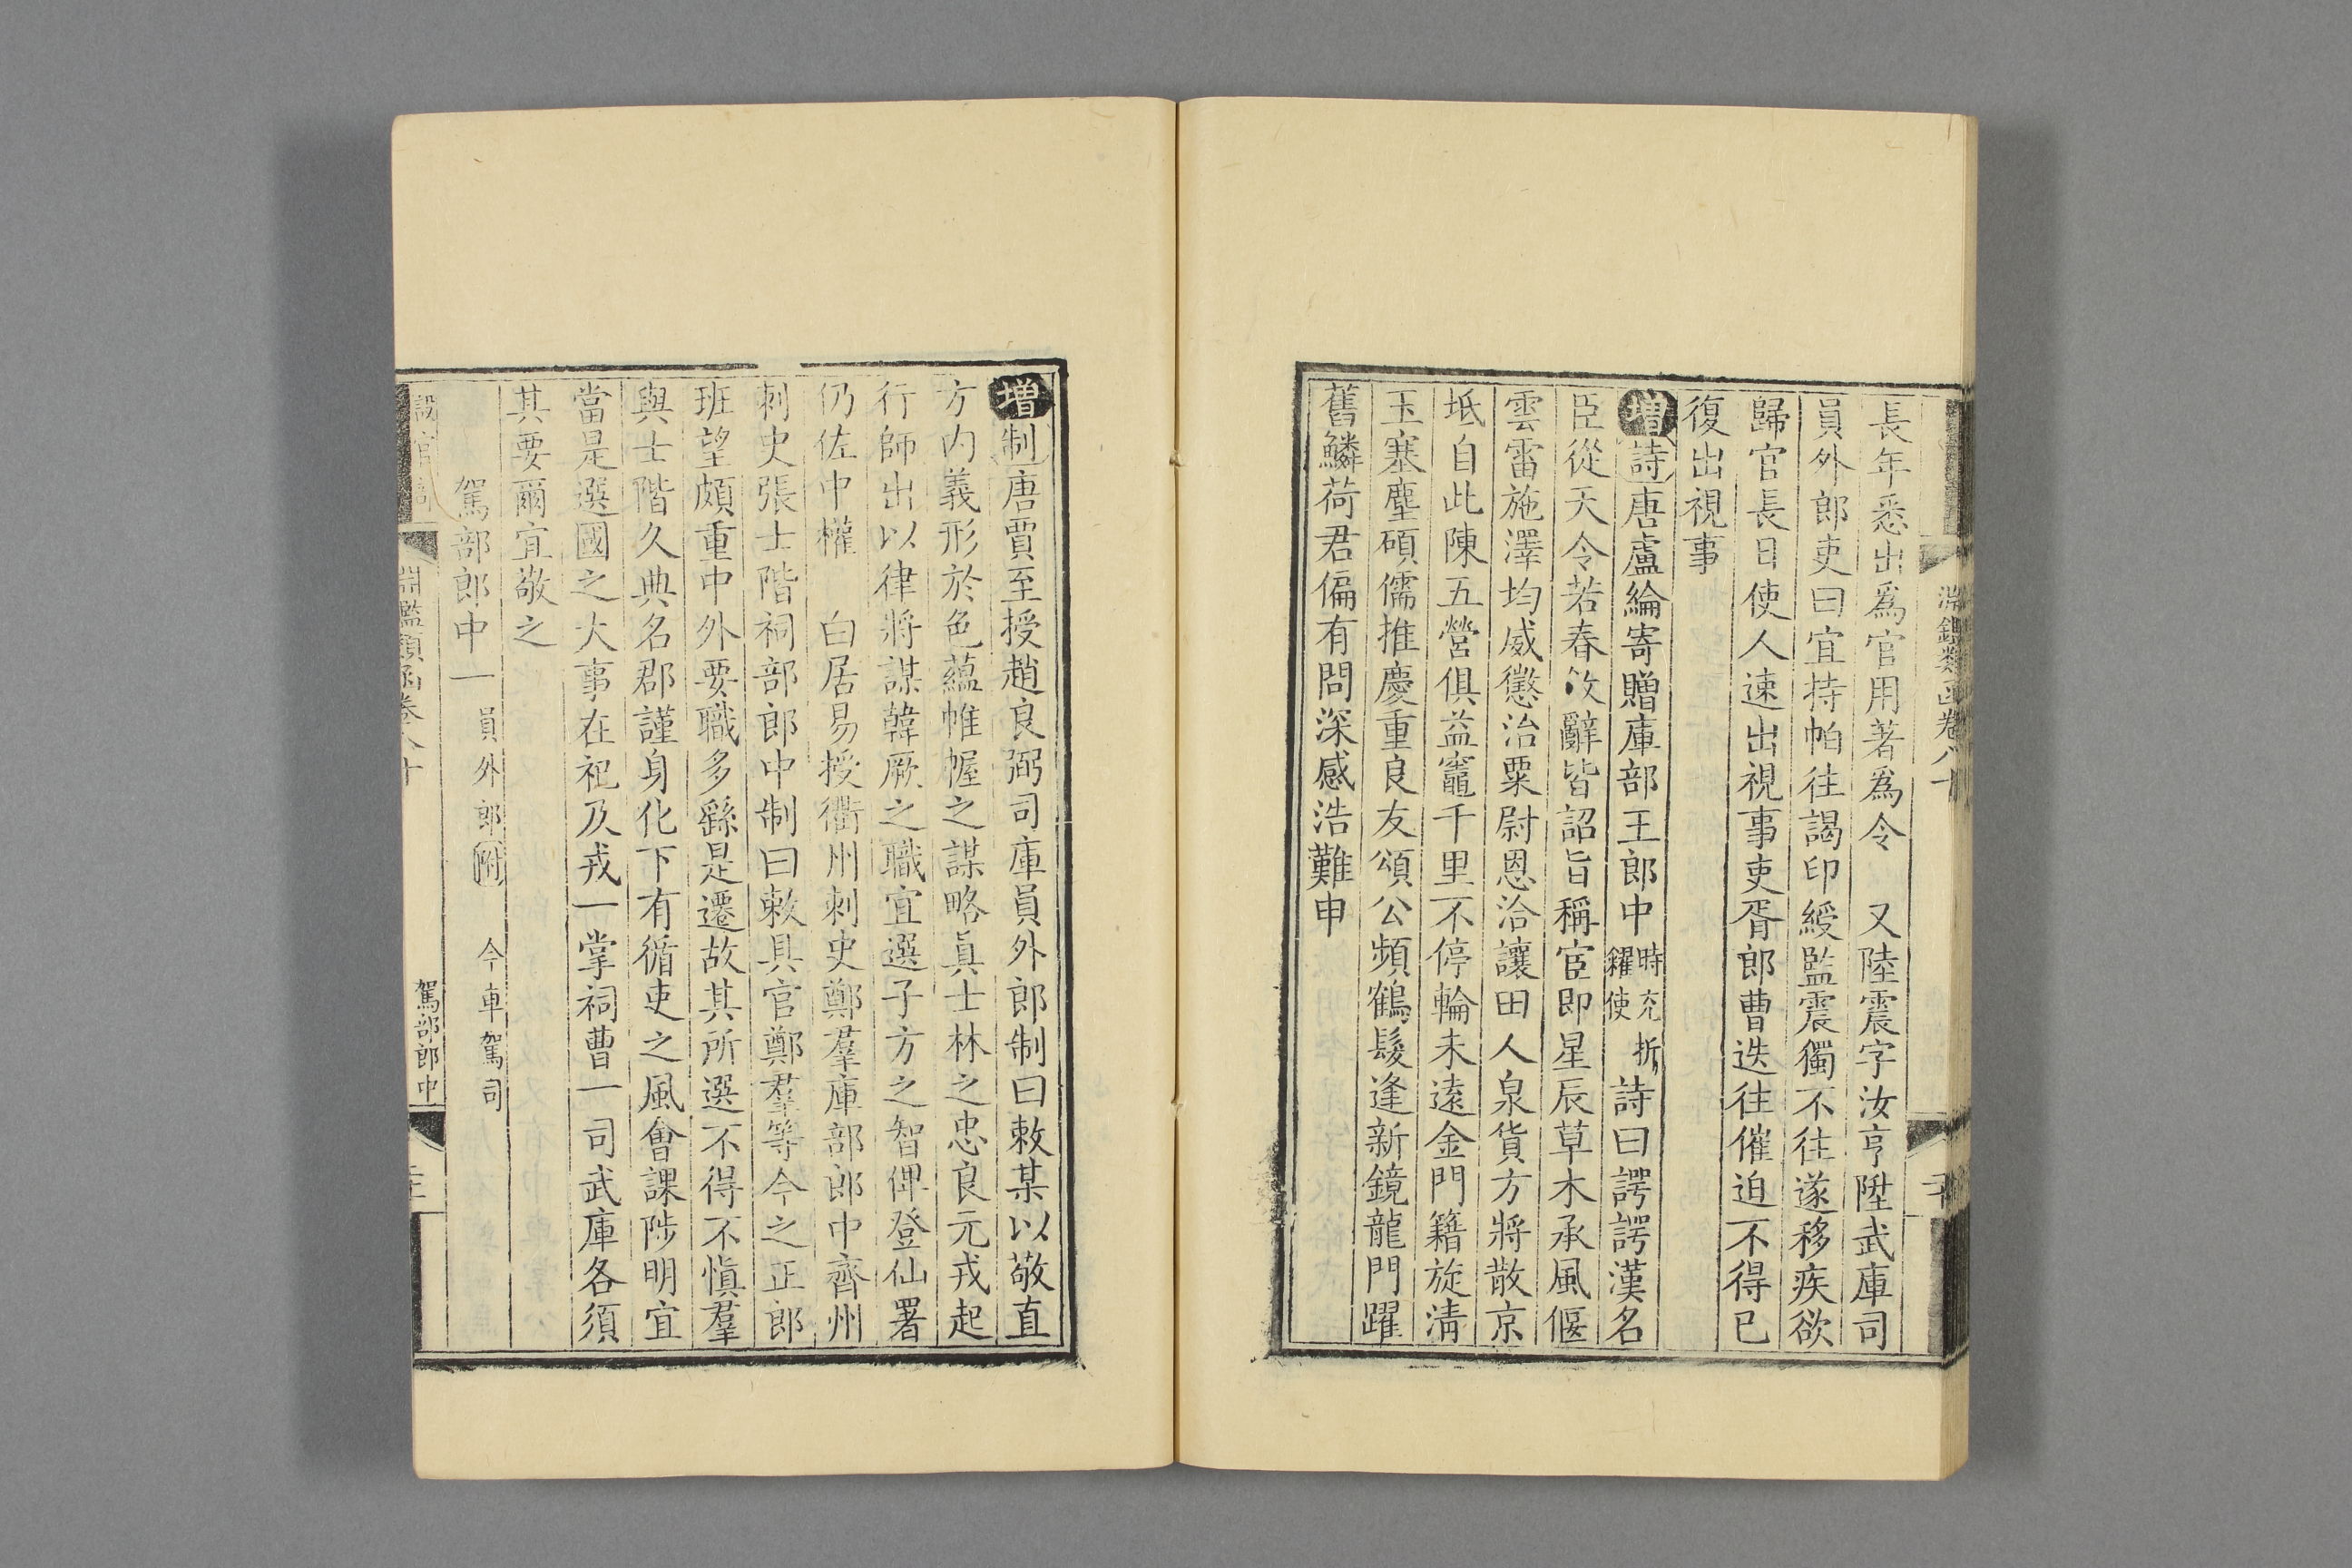 長年悉出爲官用著爲令　又陸震字汝亨陞武庫司
員外郎吏曰宜持帕往謁印綬監震獨不往遂移疾欲
歸官長日使人速出視事吏胥郎曹迭往催迫不得已
復出視事
增詩唐盧綸寄贈庫部王郎中時充折糴使詩曰諤諤漢名
臣從天令若春敘辭皆詔旨稱宦即星辰草木承風偃
雲雷施澤均威懲治粟尉恩洽讓田人泉貨方將散京
坻自此陳五營俱益竈千里不停輪未遠金門籍旋淸
玉塞塵碩儒推慶重良友頌公頻鶴髮逢新鏡龍門躍
舊鱗荷君偏有問深感浩難申
增制唐賈至授趙良弼司庫員外郎制曰敕某以敬直
方內義形於色蘊帷幄之謀略眞士林之忠良元戎起
行師出以律將謀韓厥之職宜選子方之智俾登仙署
仍佐中權　白居易授衢州刺史鄭羣庫部郎中齊州
刺史張士階祠部郎中制曰敕具官鄭羣等今之正郎
班望頗重中外要職多繇是遷故其所選不得不愼羣
與士階久典名郡謹身化下有循吏之風會課陟明宜
當是選國之大事在祀及戎一掌祠曹一司武庫各須
其要爾宜敬之
駕部郎中一員外郎附　今車駕司
淵鑑類函卷八十
駕部郎中